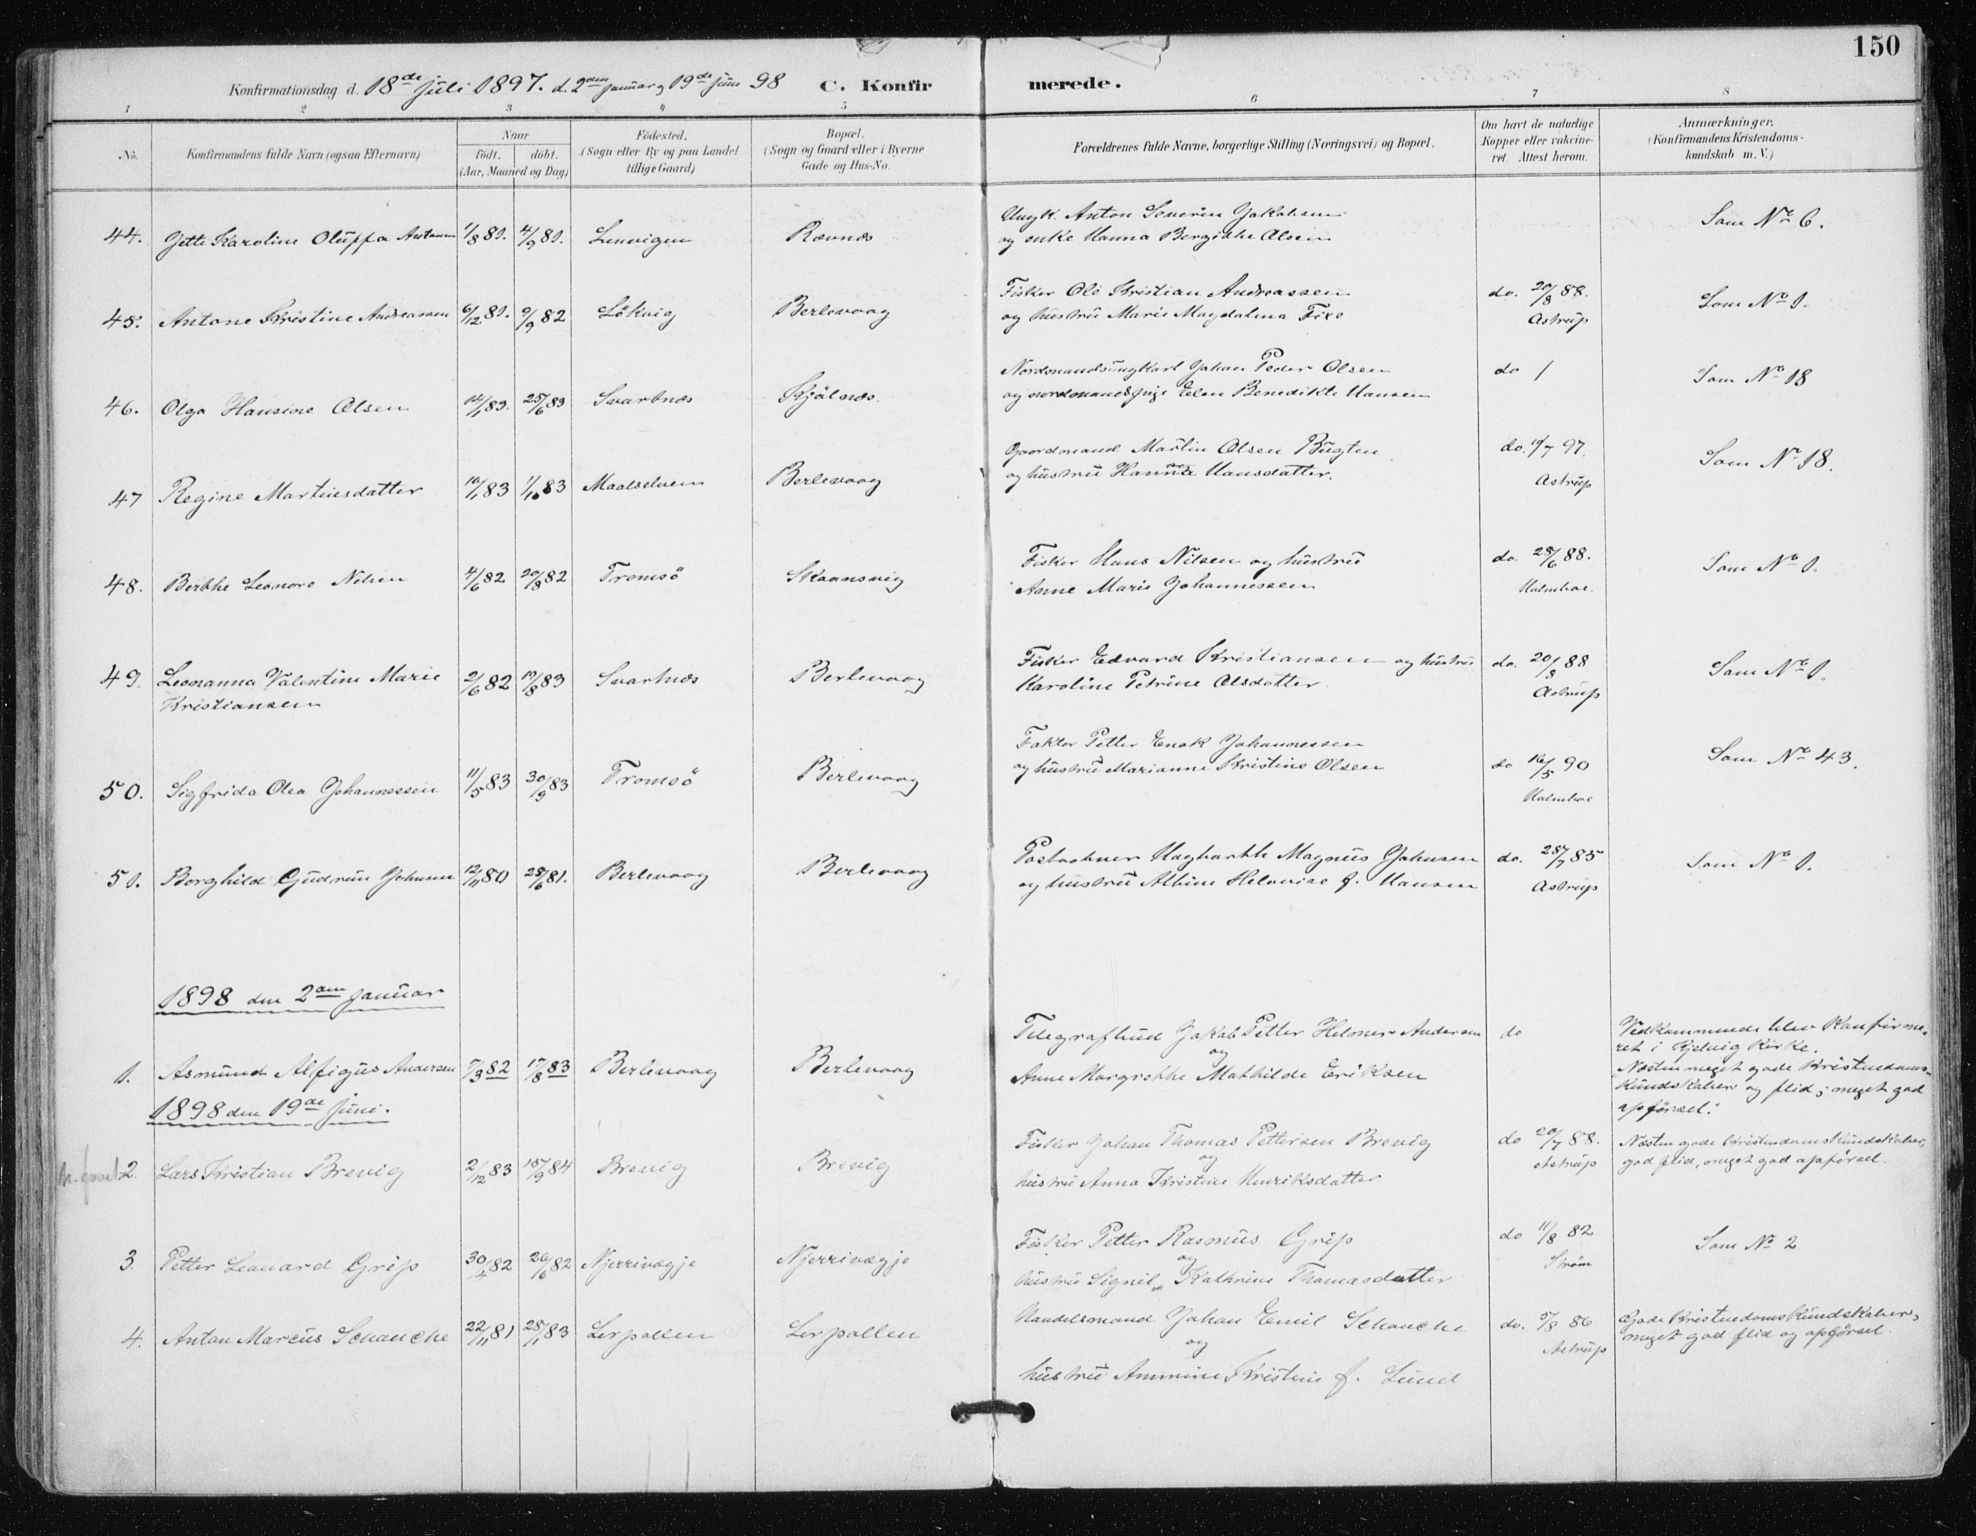 150
Konfirmationsdag d. 18de Juli 1897. d. 2den Januar og 19de Juni 98 C. Konfirmerede.
1 2 3 4 5 6 7 8
No. Konfirmandens fulde Navn (ogsaa Efternavn) Naar født. døbt. (Aar, Maaned og Dag) Fødested. (Sogn eller By og paa Landet tillige Gaard) Bopæl. (Sogn og Gaard eller i Byerne Gade og Hus-No. Forældrenes fulde Navne, borgerlige Stilling (Næringsvei) og Bopæl. Om havt de naturlige Kopper eller vakcineret. Attest herom. Anmærkninger. (Konfirmandens Kristendomskundskab m. V.)
Ungk. Anton Severin Jakobsen
44. Jette Karoline Oluffa Antonsen 1/8 81. 4/9 81. Lenvigen Rævnæs og enke Hanna Bergitthe Olsen Som No 6.
Fisker Ole Kristian Andreassen do. 20/8 88.
45. Antone Kristine Andreassen 6/12 81. 9/9 82 Løkvig Berlevaag og hustru Marie Magdalena Figo Astrup Som No 1.
Nordmandsungkarl Johan Peder Olsen do /
46. Olga Hansine Olsen 14/1 83. 25/6 83 Svartnæs Kjølnæs. og nordmandspige Elen Benedikte Hansen Som No 18
Gaardmand Martin Olsen Bugten do. 19/7 97.
47 Regine Martinsdatter 10/1 83 1/10 83 Maalselven Berlevaag og hustru Hanna Hansdatter. Astrup Som No 18.
Fisker Hans Nilsen og hustru do. 28/6 88.
48. Birthe Leonore Nilsen 4/6 82 20/8 82 Tromsö Skaansvig Anne Marie Johannessen Holmboe. Som No 1.
Fisker Edvard Kristiansen og hustru do. 20/8 88
49. Leonanna Valentine Marie 2/6 82 19/8 83 Svartnæs Berlevaag Karoline Petrine Olsdatter. Astrup Som No 1.
Kristiansen
Faktor Petter Enok Johannessen
50. Sigfrida Olea Johannessen 11/5 83 30/9 83 Tromsö Berlevaag og hustru Marianne Kristine Olsen do 16/5 90 Holmboe Som No 43.
Postaabner Hagbarth Magnus Johnsen do. 28/7 85
51. Borghild Gudrun Johnsen 12/11 80 28/6 81. Berlevaag Berlevaag og hustru Albine Helovise f. Hansen Astrup Som No 1.
1898 den 2den Januar
Telegrafbud Jakob Petter Helmer Andersen do Vedkommende blev Konfirme-
og ret i Kjelvig Kirke.
1. Asmund Alfigus Andersen 7/3 82 17/8 83 Berlevaag Berlevaag Anne Margrethe Mathilde Eriksen Næsten meget gode Kristendoms-
Kundskaber og flid; meget god
opførsel.
1898 den 19de Juni.
Fisker Johan Thomas Pettersen Brevig do 20/7 88. Næsten gode Kristendomskundskaber,
2. Lars Kristian Brevig 2/12 83 15/9 84 Brevig Brevig og Astrup god flid, meget god opførsel.
hustru Anna Kristine Henriksdatter
Fisker Petter Rasmus Grip do 11/8 82
3. Petter Leonard Grip 30/4 82 26/6 82 Njerrivægje Njerrivægje og Strøm Som No 2
hustru Signil Kathrine Thomasdatter
Handelsmand Johan Emil Schanche do. 5/8 86 Gode Kristendomskundskaber,
4. Anton Marcus Schanche 22/11 81 28/1 83 Lerpollen Lerpollen og Astrup meget god flid og opførsel.
hustru Ammine Kristine f. Lund